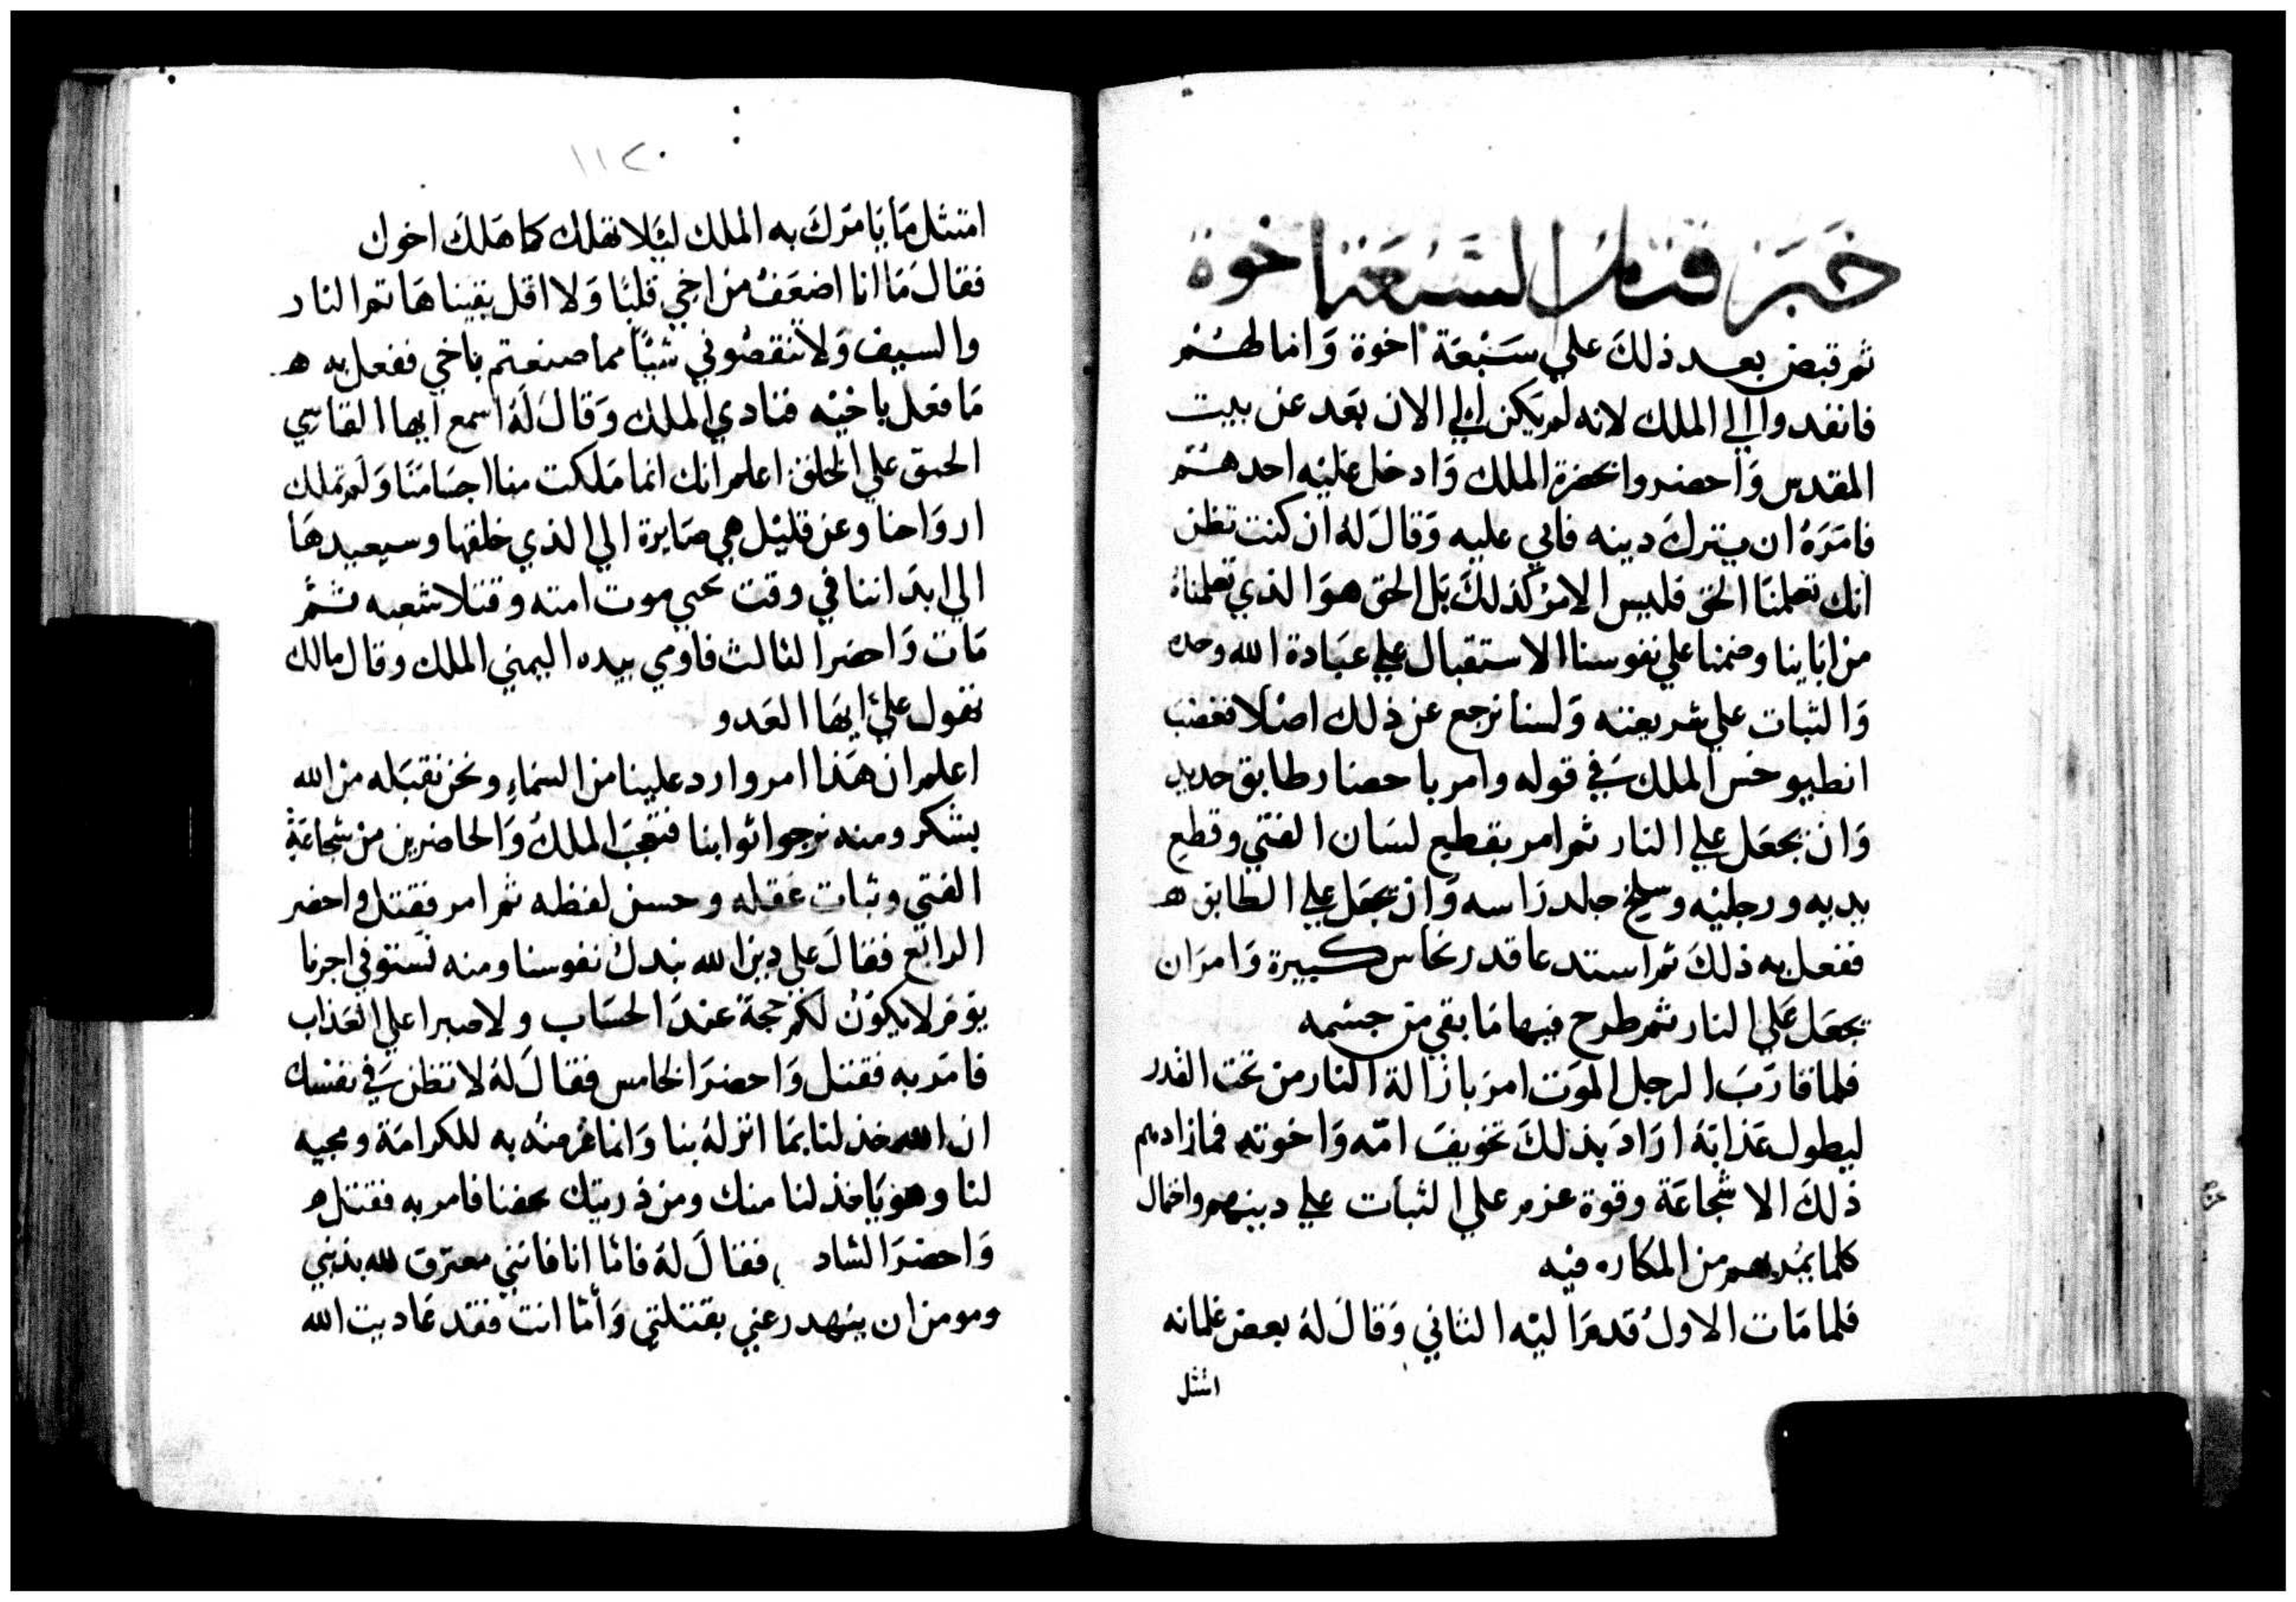 خبر قتل السبعة اخوة
ثم قبض بعد ذلك علي سبعة اخوة وامالهم
فانفدوا الي الملك لانه لم يكن الي الان بعد عن بيت
المقدس واحضروا بحضرة الملك وادخل عليه احدهم
فامره ان يترك دينه فابي عليه وقال له ان كنت تظن
انك تعلمنا الحق فليس الامر كذلك بل الحق هو الذي تعلمناه
من اباينا وضمنا علي نفوسنا الاستقبال علي عبادة الله وحده
والثبات علي شريعته ولسنا نرجع عن ذلك اصلا فغضب
انطيوخس الملك في قوله وامر باحضار طابق حديد
وان يجعل علي النار ثم امر بقطع لسان الفتي وقطع
يديه ورجليه وسلخ جلد راسه وان يجعل علي الطابق ه
ففعل به ذلك ثم استدعا قدر نحاس كبيرة وامر ان
يجعل علي النار ثم طرح فيها ما بقي من جسمه
فلما قارب الرجل الموت امر بازالة النار من تحت القدر
ليطول عذابه اراد بذلك تخويف امه واخوته فما زادهم
ذلك الا شجاعة وقوة عزم علي الثبات علي دينهم واحتمال
كلما يمر بهم من المكاره فيه
فلما مات الاول قدم اليه الثاني وقال له بعض غلمانه
امتثل
١١٢٠
امتثل ما يامرك به الملك ليلا تهلك كما هلك اخوك
فقال ما انا اضعف من اخي قلبا ولا اقل يقينا هاتم النار
والسيف ولا تنقصوني شيا مما صنعتم باخي ففعل به ه
ما فعل باخيه فنادي الملك وقال له اسمع ايها القاسي
علي الخلق اعلم انك انما ملكت منا اجسامنا ولم تملك
ارواحنا وعن قليل هي صايرة الي الذي خلقها وسيعيدها
الي ابداننا في وقت يحيي موت امته وقتلا شعبه ثم
مات واحضر الثالث فاومي بيده اليمني الملك وقال مالك
تهول علي ايها العدو
اعلم ان هذا امر وارد علينا من السماء ونحن نقبله من الله
بشكر ومنه نرجوا ثوابنا فتعجب الملك والحاضرين من شجاعة
الفتي وثبات عقله وحسن لفظه ثم امر فقتل واحضر
الرابع فقال علي دين الله نبدل نفوسنا ومنه نستوفي اجرنا
يوم لا يكون لكم حجة عند الحساب ولا صبرا علي العذاب
فامر به فقتل واحضر الخامس فقال له لا تظن في نفسك
ان الله خذلنا بما انزله بنا وانما غرضه به للكرامة ومحبه
لنا وهو ياخذ لنا منك ومن ذريتك بحقنا فامر به فقتل ه
واحضر الساد فقال له فاما انا فانني معترف لله بذنبي
ومومن ان ينهدر عني بقتلتي واما انت فقد عاديت الله